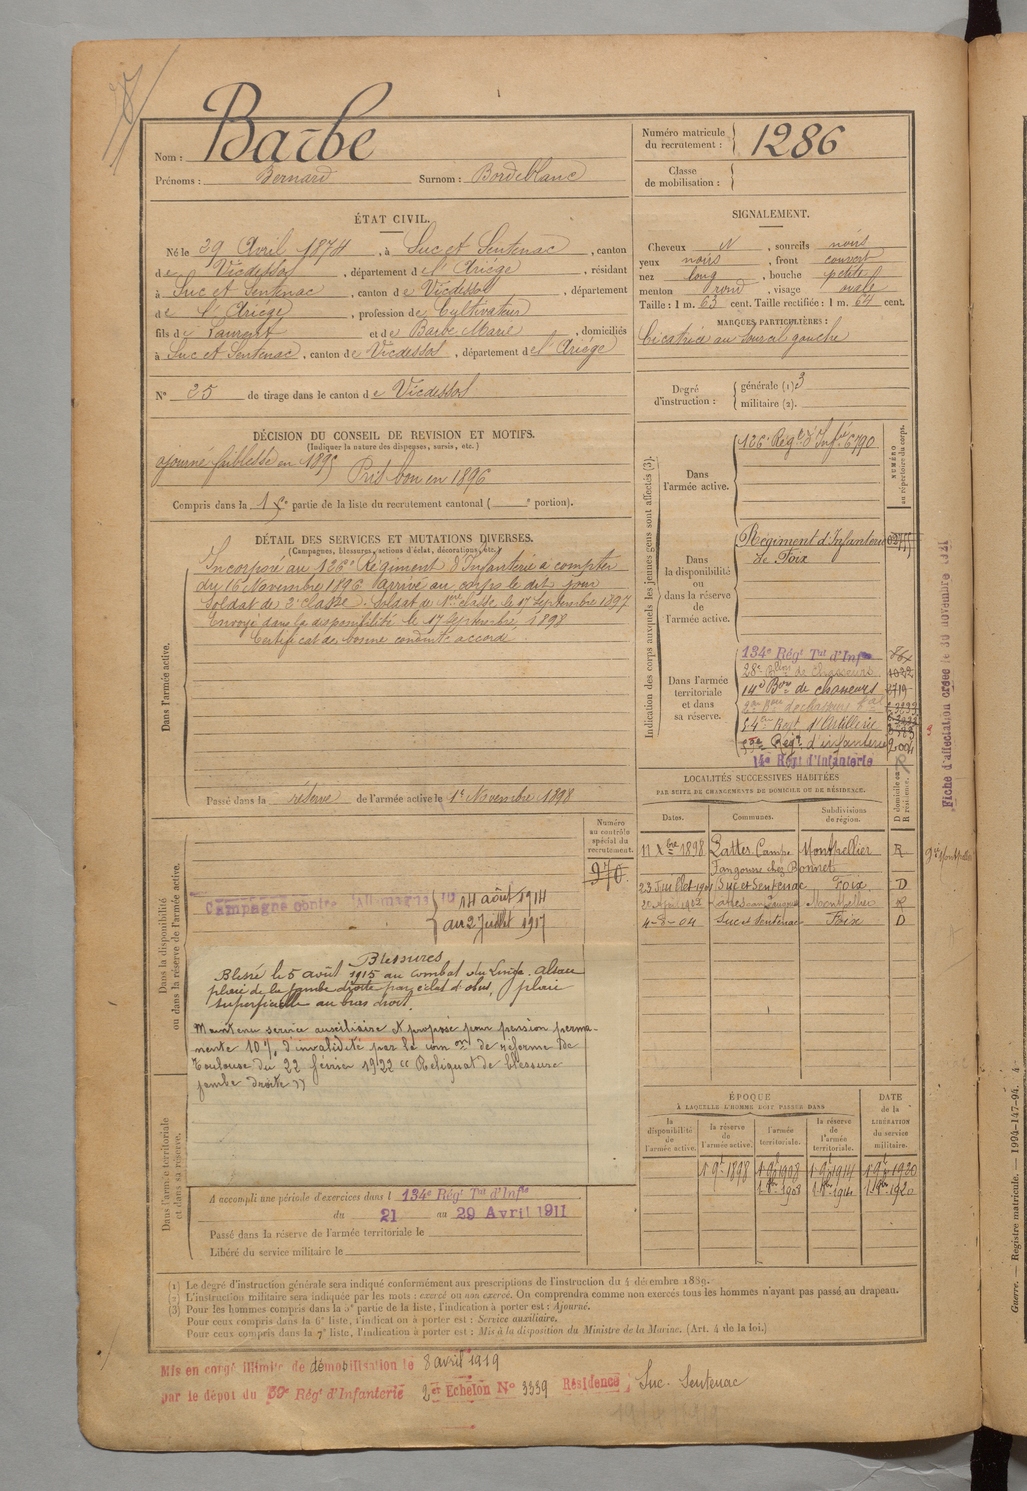 Barbe
Nom :
Prénoms : Bernard Surnom : Bordeblanc
Numéro matricule
du recrutement : 1286
Classe
de mobilisation :
ÉTAT CIVIL.
Né le 29 Avril 1874, à Suc et Sentenac, canton
de Vicdessos, département de l'Ariége, résidant
à Suc et Sentenac, canton de Vicdessos, département
de l'Ariége, profession de Cultivateur
fils de Laurent et de Barbe Marie, domiciliés
à Suc et Sentenac, canton de Vicdessos, département de l'Ariége
N° 25 de tirage dans le canton de Vicdessos
SIGNALEMENT.
Cheveux N, sourcils noirs
yeux noirs, front couvert
nez long, bouche petite
menton rond, visage ovale
Taille : 1 m. 63 cent. Taille rectifiée : 1 m. 64 cent.
MARQUES PARTICULIÈRES :
Cicatrice au sourcil gauche
Degré
d'instruction : générale (1) 3
militaire (2).
DÉCISION DU CONSEIL DE REVISION ET MOTIFS.
(Indiquer la nature des dispenses, sursis, etc.)
ajourné faiblesse en 1895 Pris bon en 1896
Compris dans la 1re partie de la liste du recrutement cantonal ( e portion).
DÉTAIL DES SERVICES ET MUTATIONS DIVERSES.
(Campagnes, blessures, actions d'éclat, décorations, etc.)
Dans l'armée active.
Incorporé au 126e Régiment d'Infanterie à compter
du 16 Novembre 1896 Arrivé au corps le dit jour
Soldat de 2e classe. Soldat de 1ère classe le 17 Septembre 1897
Envoyé dans la disponibilité le 17 Septembre 1898
Certificat de bonne conduite accordé
Passé dans la réserve de l'armée active le 1er Novembre 1898
Indication des corps auxquels les jeunes gens sont affectés (3).
NUMÉRO
au répertoire du corps.
Dans
l'armée active.
126e Régt d'Infie 6790
Dans
la disponibilité
ou
dans la réserve
de
l'armée active.
Régiment d'Infanterie
de Foix
Dans l'armée
territoriale
et dans
sa réserve.
134e Régt Tal d'Infie
14e Bon de chasseurs 2719
54e Regt d'Artillerie
Regt d'infanterie 2004
14e Régt d'Infanterie
Fiche d'affectation créée le 30 novembre 1921
LOCALITÉS SUCCESSIVES HABITÉES
PAR SUITE DE CHANGEMENTS DE DOMICILE OU DE RÉSIDENCE.
Dates. Communes. Subdivisions de région. D domicile ou R résidence.
11 Xbre 1898 Lattes Campe Montpellier R
Fangouse chez Bonnet
23 Juillet 1901 Suc et Sentenac Foix. D
Montpellier R
4-8-04 Suc et Sentenac Foix D
Dans la disponibilité
ou dans la réserve de l'armée active.
Numéro
au contrôle
spécial du
recrutement.
970
Campagne contre l'Allemagne du 14 août 1914
au 2 Juillet 1917
Blessures
Blessé le 5 août 1915 au combat du Linge. Alsace
plaie de la jambe droite par éclat d'obus, plaie
superficielle au bras droit.
Maintenu service auxiliaire et proposé pour pension perma-
nente 10% d'invalidité par la com on de réforme de
Toulouse du 22 février 1922 "Reliquat de blessure
jambe droite"
Dans l'armée territoriale
et dans sa réserve.
A accompli une période d'exercices dans l 134e Régt Tal d'Infie
du 21 au 29 Avril 1911
Passé dans la réserve de l'armée territoriale le
Libéré du service militaire le
ÉPOQUE
À LAQUELLE L'HOMME DOIT PASSER DANS
DATE
de la
LIBÉRATION
du service
militaire.
la disponibilité de l'armée active. la réserve de l'armée active. l'armée territoriale. la réserve de l'armée territoriale.
1 9 1898 1 9 1908 1 9 1914 1 9 1920
(1) Le degré d'instruction générale sera indiqué conformément aux prescriptions de l'instruction du 4 décembre 1889.
(2) L'instruction militaire sera indiquée par les mots : exercé ou non exercé. On comprendra comme non exercés tous les hommes n'ayant pas passé au drapeau.
(3) Pour les hommes compris dans la 5e partie de la liste, l'indication à porter est : Ajourné.
Pour ceux compris dans la 6e liste, l'indication à porter est : Service auxiliaire.
Pour ceux compris dans la 7e liste, l'indication à porter est : Mis à la disposition du Ministre de la Marine. (Art. 4 de la loi.)
Mis en congé illimité de démobilisation le 8 avril 1919
par le dépôt du 59e Régt d'Infanterie 2e Echelon N° 3339 Résidence Suc-Sentenac
Guerre. — Registre matricule. — 1994-147-94. 4.